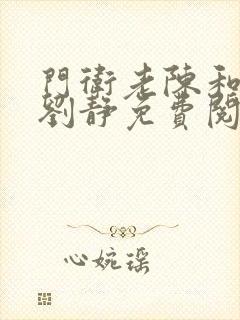 門衛老陳和
劉靜免費閱
心婉瑶